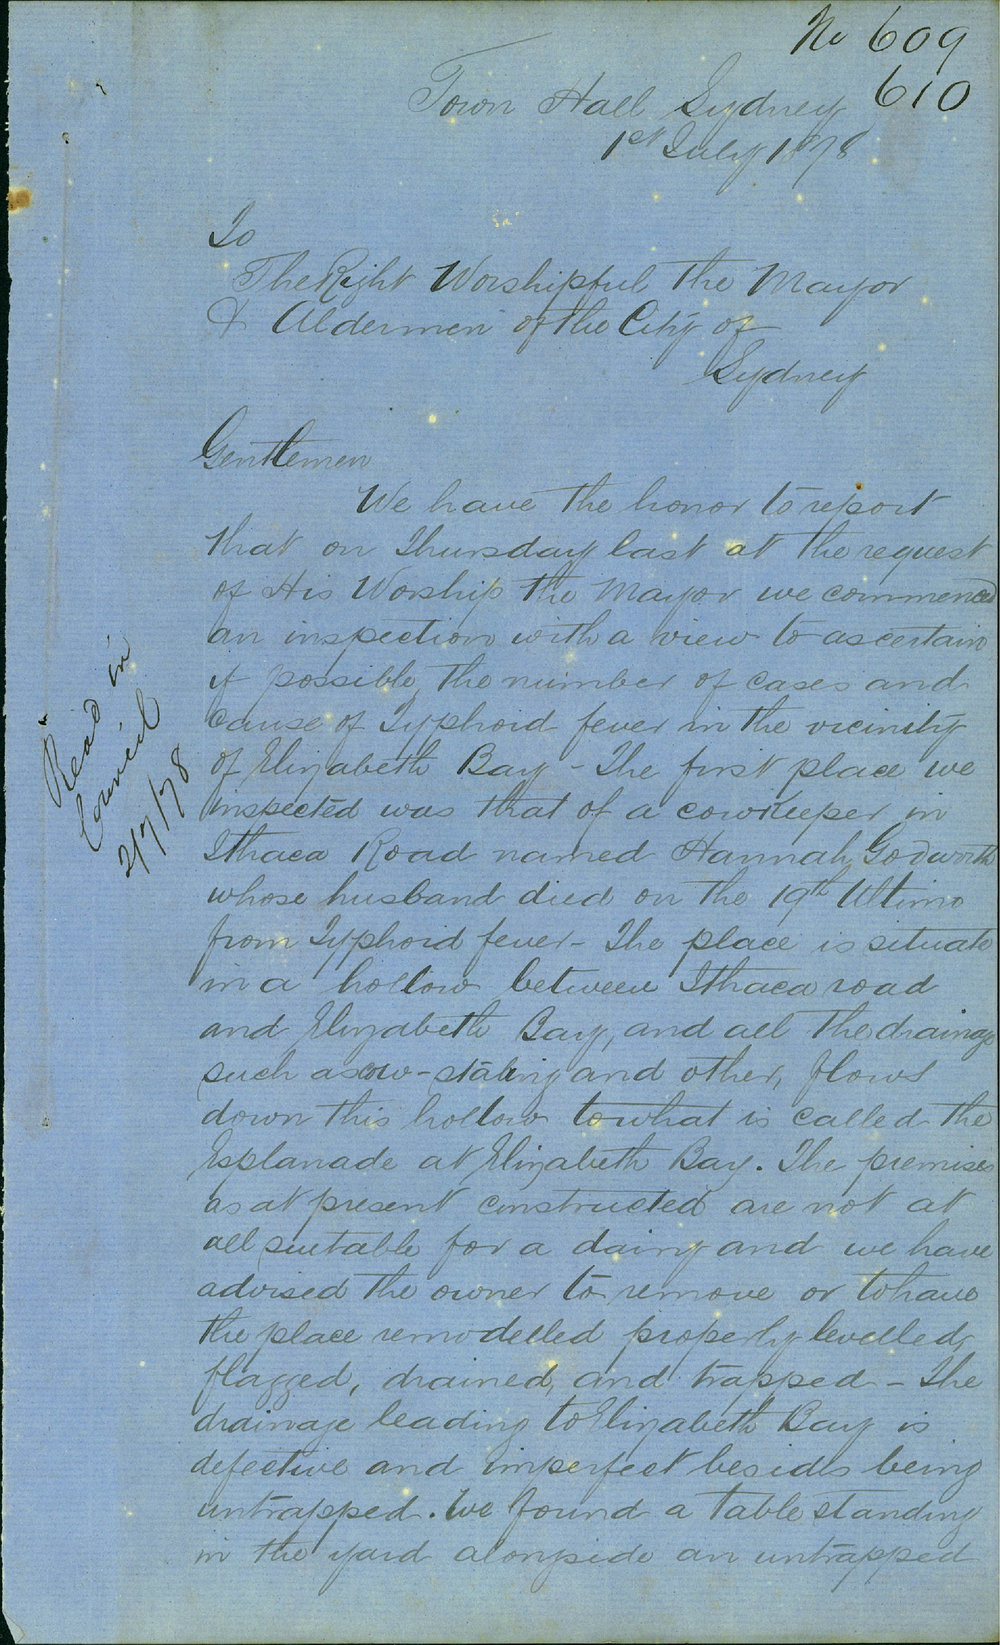 No 609
610
Town Hall Sydney
1st July 1878
To
The Right Worshipful the Mayor
& Aldermen of the City of
Sydney
Gentlemen
We have the honor to report
that on Thursday last at the request
of His Worship the Mayor we commenced
an inspection with a view to ascertain
if possible, the number of cases and
cause of Typhoid fever in the vicinity
of Elizabeth Bay - The first place we
inspected was that of a cowkeeper in
Ithaca Road named Hannah Godworth
whose husband died on the 19th Ultimo
from Typhoid fever - The place is situate
in a hollow between Ithaca road
and Elizabeth Bay, and all the drainage
such as cow-staling and other, flows
down this hollow to what is called the
Esplanade at Elizabeth Bay. The premises
as at present constructed are not at
all suitable for a dairy and we have
advised the owner to remove or to have
the place remodelled properly levelled,
flagged, drained, and trapped - The
drainage leading to Elizabeth Bay is
defective and imperfect besides being
untrapped. We found a table standing
in the yard alongside an untrapped
Read in
Council
2/7/78